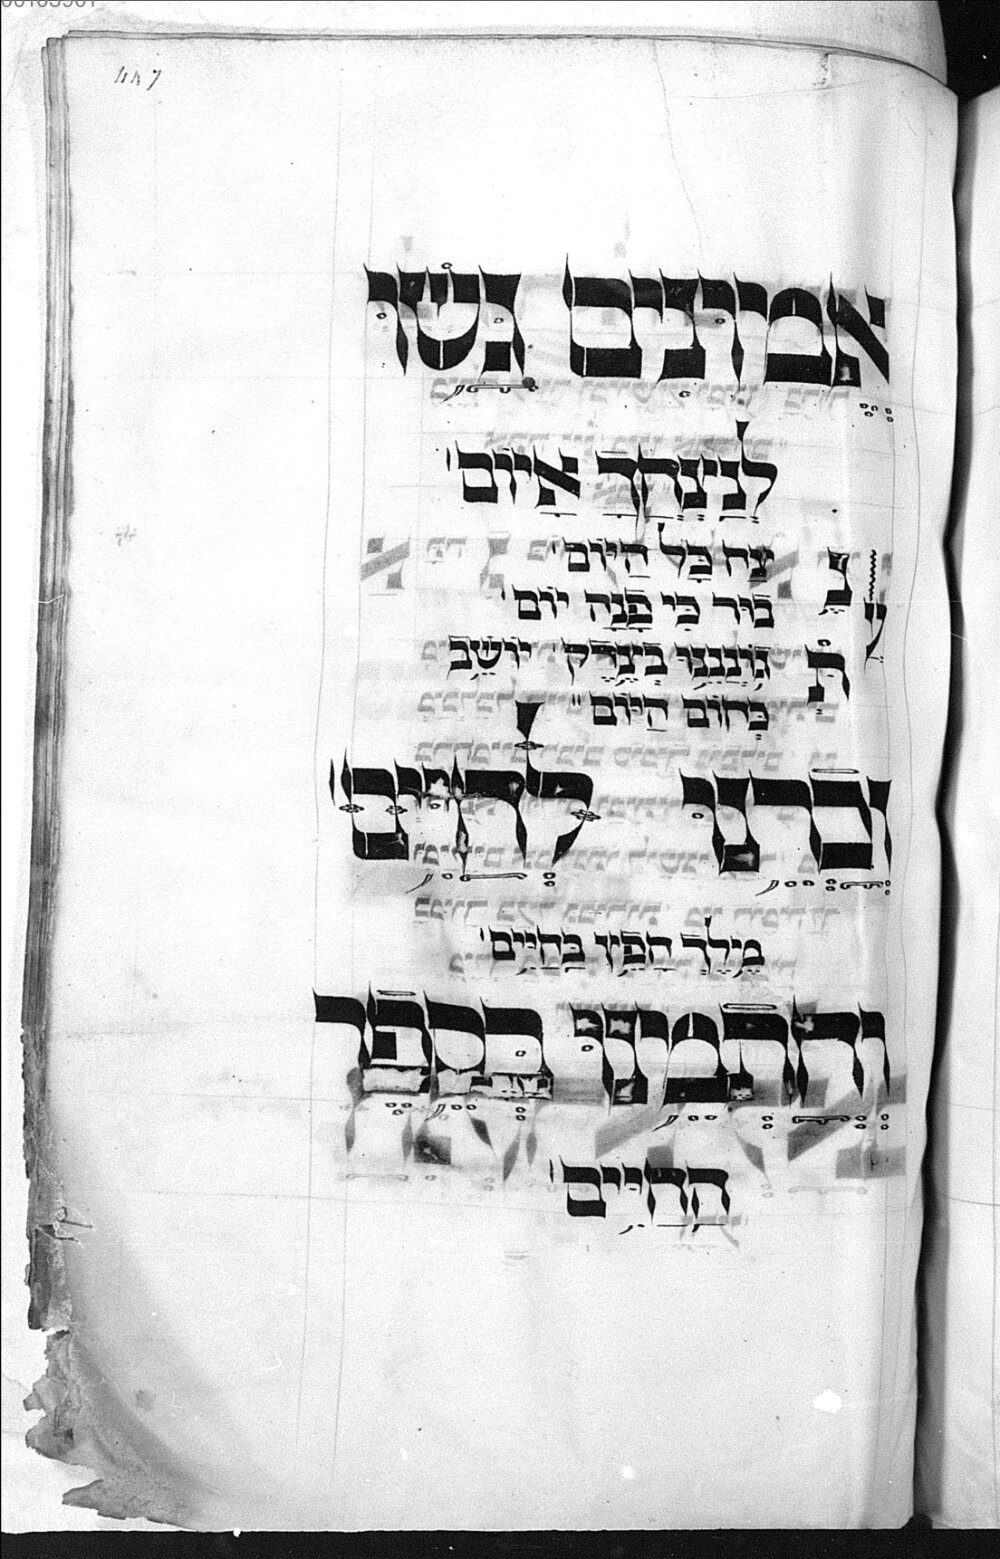 447
אמונים גשו
לנצחך איום
נצח כל היום
עבור כי פנה יום
תגוננו בצדק יושב
כחום היום
זכרנו לחיים
מלך חפץ בחיים
וחתמנו בספר
החיים